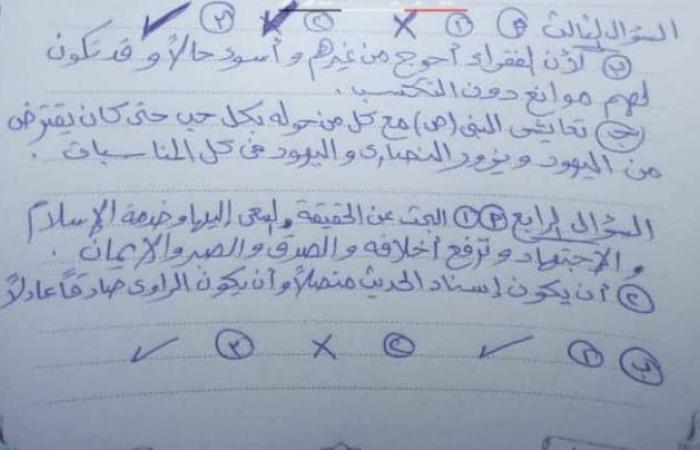 السؤال الثالث (أ) (١) × (٢) ✓ (٣) ✓
(ب) لأن الفقراء أحوج من غيرهم وأسوء حالاً وقد تكون
لهم موانع دون التكسب.
(ج) تعايش النبى (ص) مع كل من حوله بكل حب حتى كان يقترض
من اليهود ويزور النصارى واليهود فى كل المناسبات.
السؤال الرابع (أ) (١) البحث عن الحقيقة والسعى إليها وخدمة الإسلام
والإجتهاد وترفع أخلاقه والصدق والصبر والإيمان.
(٢) أن يكون إسناد الحديث متصلاً وأن يكون الراوى صادقاً عادلاً
(ب) (١) ✓ (٢) × (٣) ✓